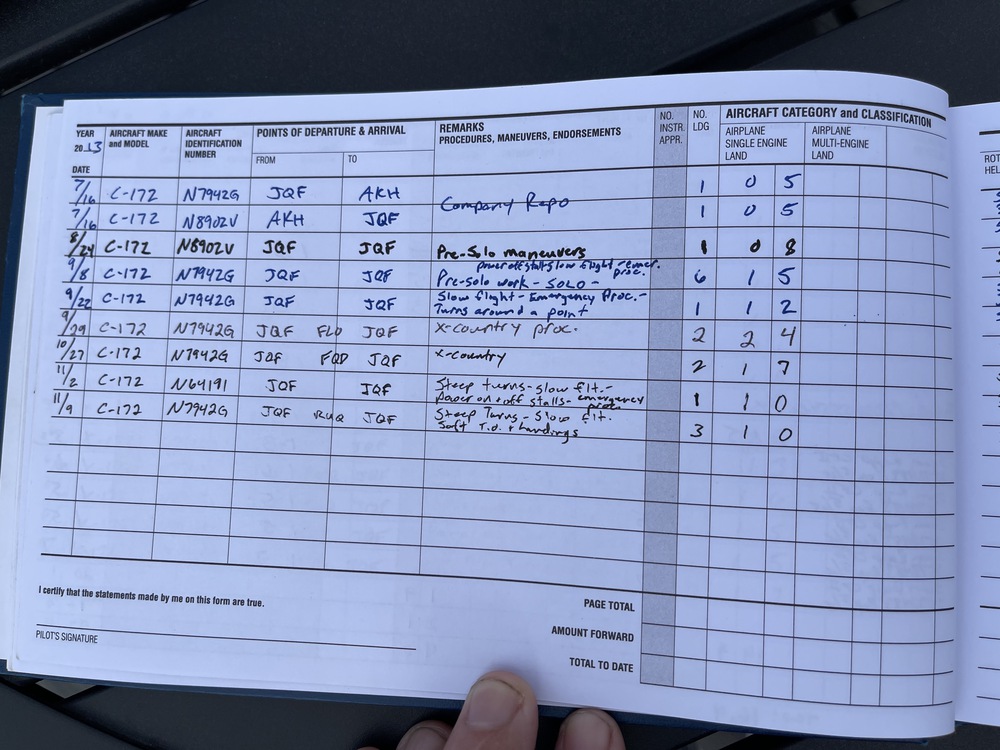 YEAR 2013 AIRCRAFT MAKE and MODEL AIRCRAFT IDENTIFICATION NUMBER POINTS OF DEPARTURE & ARRIVAL REMARKS PROCEDURES, MANEUVERS, ENDORSEMENTS NO. INSTR. APPR. NO. LDG AIRCRAFT CATEGORY and CLASSIFICATION
DATE FROM TO AIRPLANE SINGLE ENGINE LAND AIRPLANE MULTI-ENGINE LAND ROT HEL
7/16 C-172 N7942G JQF AKH 1 0 5
Company Repo
7/16 C-172 N8902V AKH JQF 1 0 8
8/24 C-172 N8902V JQF JQF Pre-Solo maneuvers 1 0 8
power off stalls slow flight proc.
9/8 C-172 N7942G JQF JQF Pre-solo work - SOLO - 6 1 5
9/22 C-172 N7942G JQF JQF Slow flight - Emergency Proc. - 1 1 2
Turns around a point
9/29 C-172 N7942G JQF FLO JQF X-country proc. 2 2 4
10/27 C-172 N7942G JQF FQD JQF X-country 2 1 7
11/2 C-172 N64191 JQF JQF Steep turns - slow flt. - 1 1 0
power on + off stalls - emergency proc.
11/9 C-172 N7942G JQF RUQ JQF Steep Turns - Slow flt. 3 1 0
Soft T.O. + landings
I certify that the statements made by me on this form are true.
PAGE TOTAL
AMOUNT FORWARD
PILOT'S SIGNATURE
TOTAL TO DATE